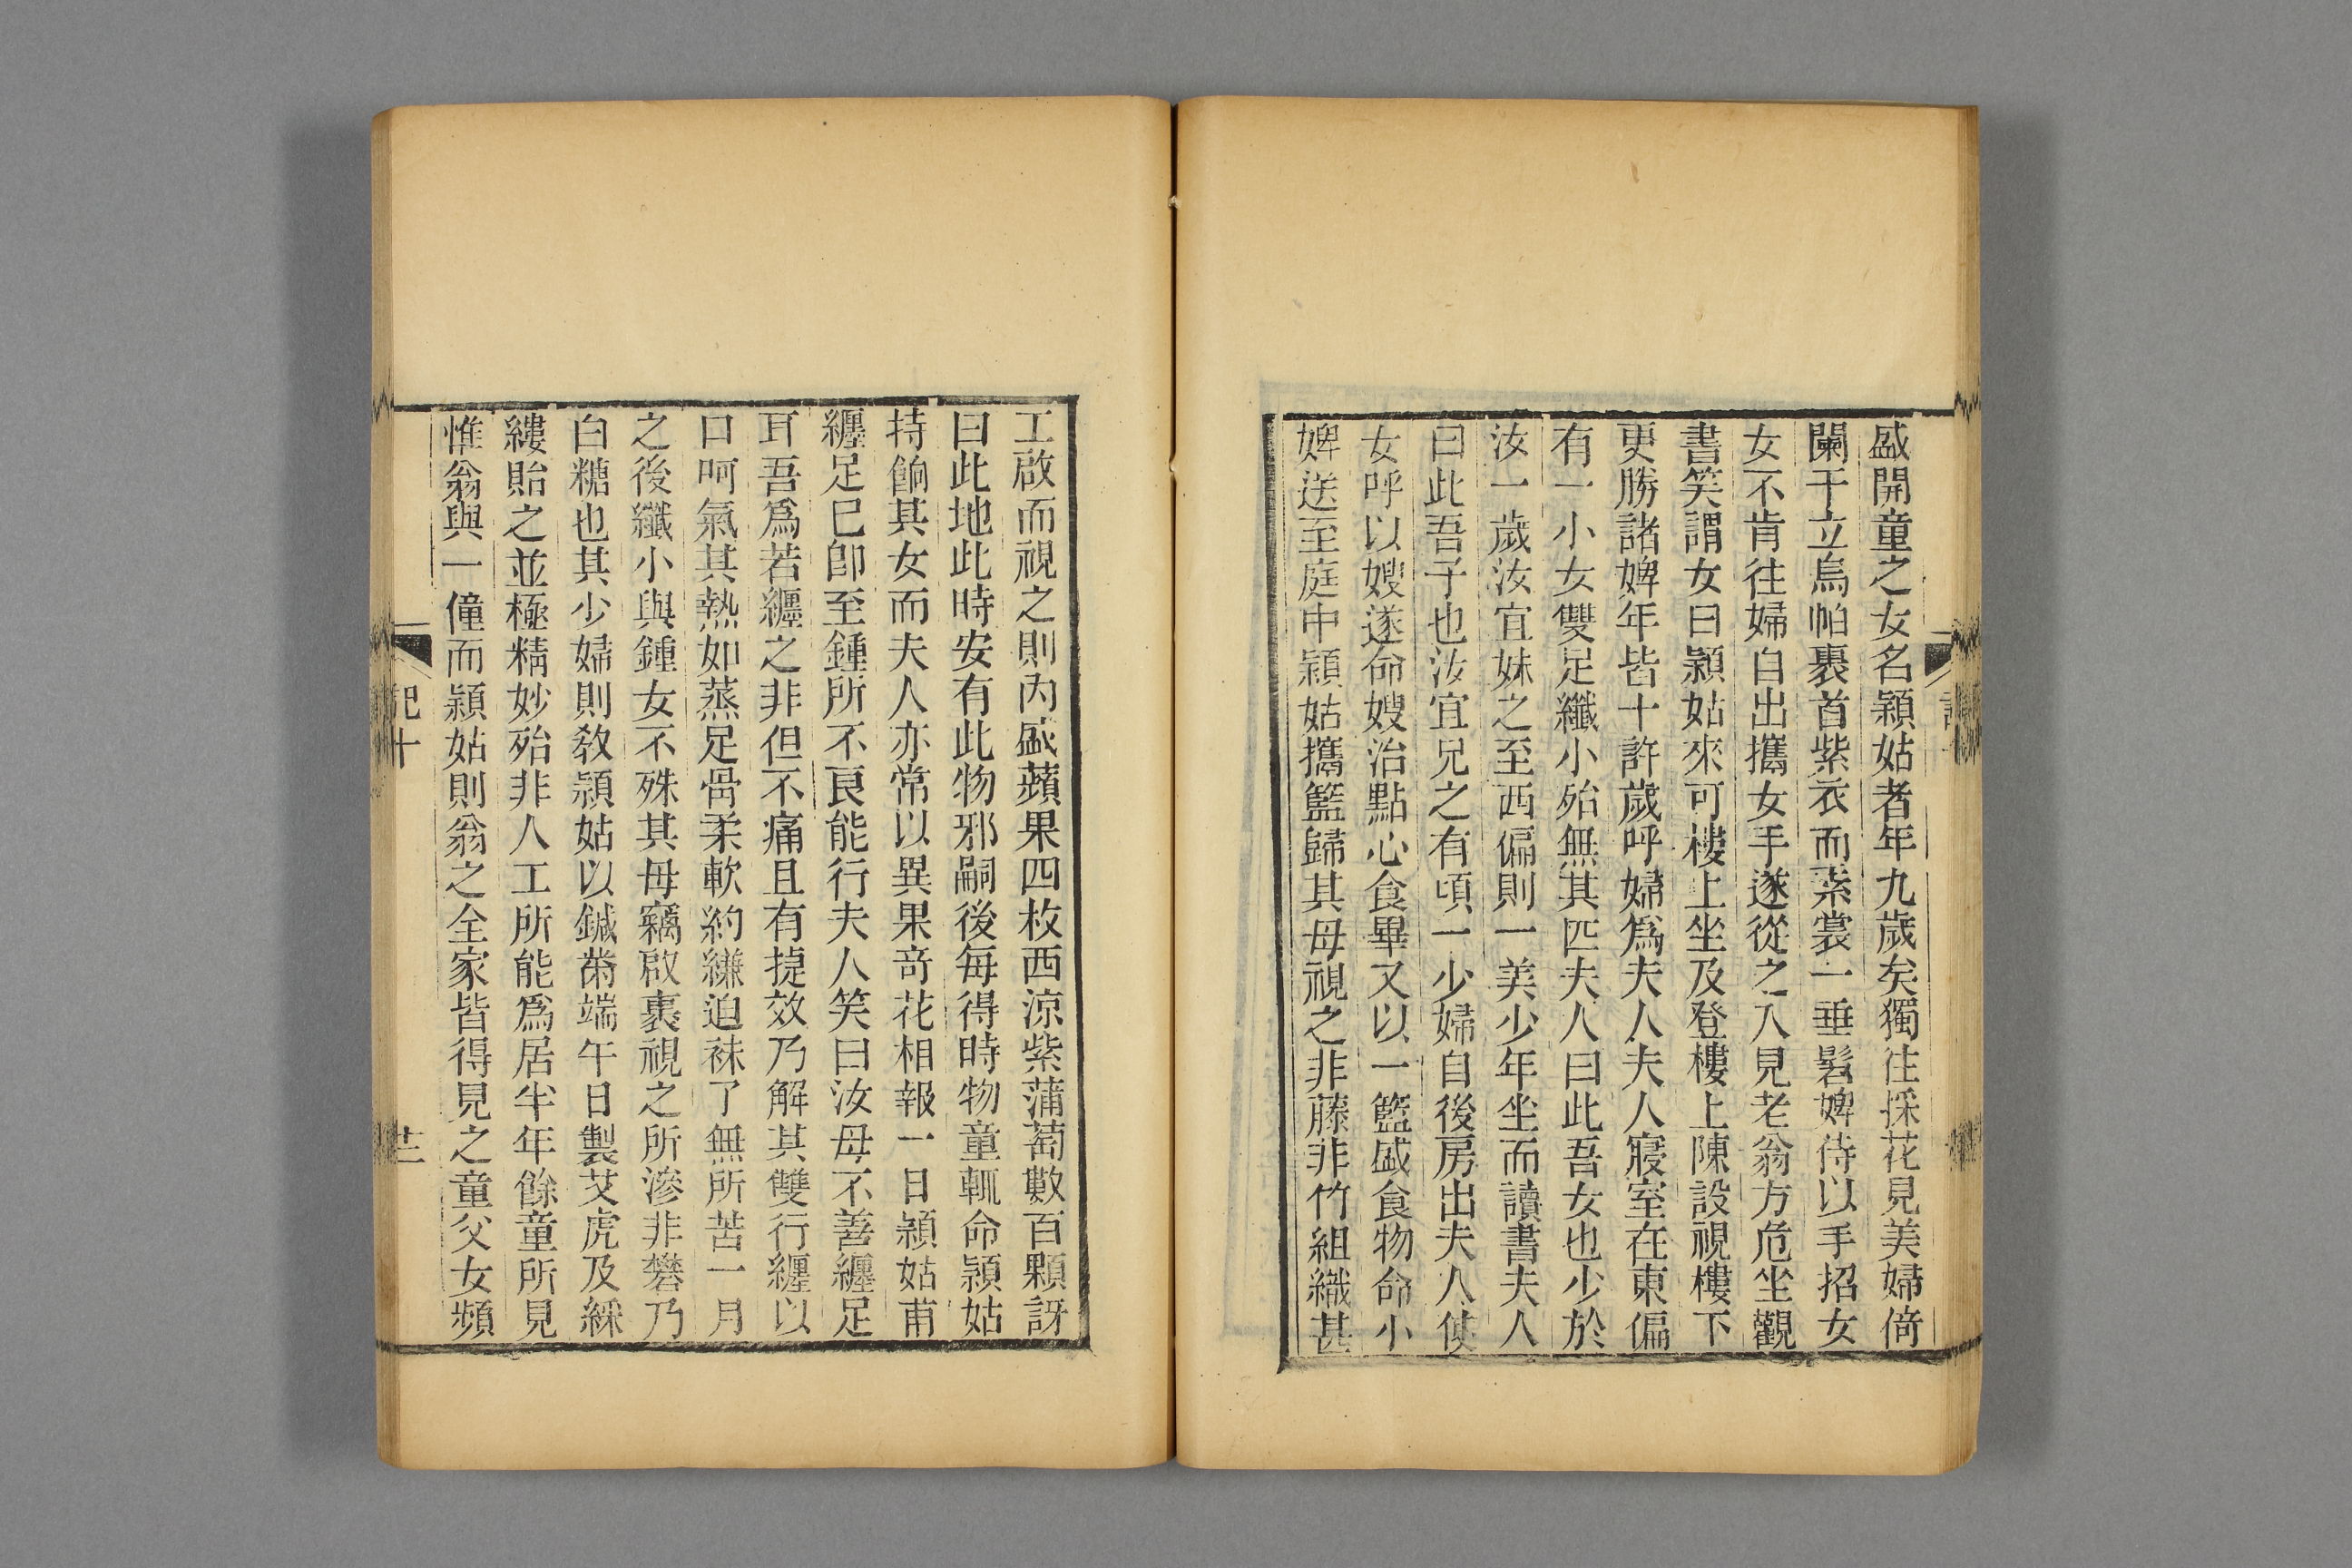 盛開童之女名頴姑者年九歲矣獨往採花見美婦倚
闌干立烏帕裹首紫衣而素裳一垂髫婢侍以手招女
女不肯往婦自出攜女手遂從之入見老翁方危坐觀
書笑謂女曰頴姑來可樓上坐及登樓上陳設視樓下
更勝諸婢年皆十許歲呼婦爲夫人夫人寢室在東偏
有一小女雙足纖小殆無其匹夫人曰此吾女也少於
汝一歲汝宜妹之至西偏則一美少年坐而讀書夫人
曰此吾子也汝宜兄之有頃一少婦自後房出夫人使
女呼以嫂遂命嫂治點心食畢又以一籃盛食物命小
婢送至庭中頴姑攜籃歸其母視之非藤非竹組織甚
工啟而視之則內盛蘋果四枚西涼紫蒲萄數百顆訝
曰此地此時安有此物邪嗣後每得時物童輒命頴姑
持餉其女而夫人亦常以異果奇花相報一日頴姑甫
纏足已卽至鍾所不良能行夫人笑曰汝母不善纏足
耳吾爲若纏之非但不痛且有捷效乃解其雙行纏以
口呵氣其熱如蒸足骨柔軟約縑迫袜了無所苦一月
之後纖小與鍾女不殊其母竊啟裹視之所滲非礬乃
白糖也其少婦則敎頴姑以鍼黹端午日製艾虎及綵
縷貽之並極精妙殆非人工所能爲居半年餘童所見
惟翁與一僮而頴姑則翁之全家皆得見之童父女頻
記十